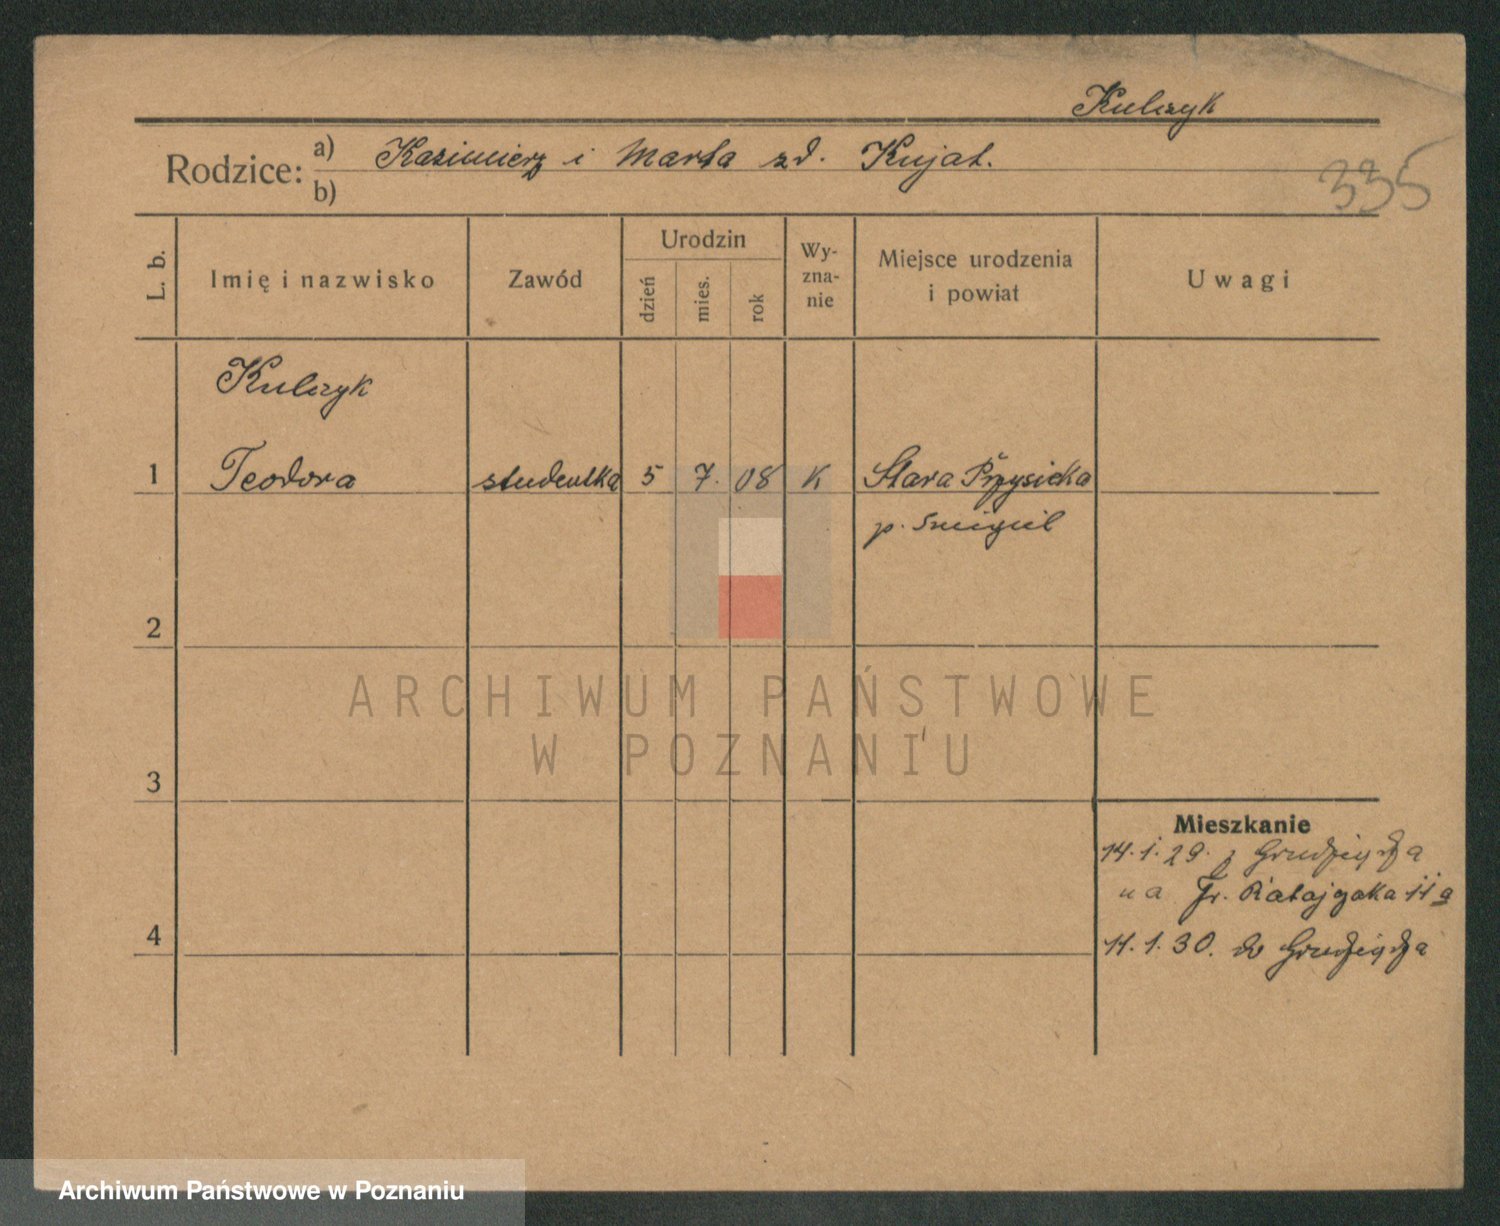 Kulczyk
Rodzice: a) Kazimierz i Marta zd. Kujat.
b)
335
L. b.
Imię i nazwisko
Zawód
Urodzin
dzień
mies.
rok
Wy-
zna-
nie
Miejsce urodzenia
i powiat
Uwagi
Kulczyk
1 Teodora studentka 5 7. 08 K Stara Przysieka
p. Śmigiel
2
ARCHIWUM PAŃSTWOWE
W POZNANIU
3
Mieszkanie
14. 1. 29. z Grudziądza
na Fr. Ratajczaka 11a
4
11. 1. 30. do Grudziądza
Archiwum Państwowe w Poznaniu